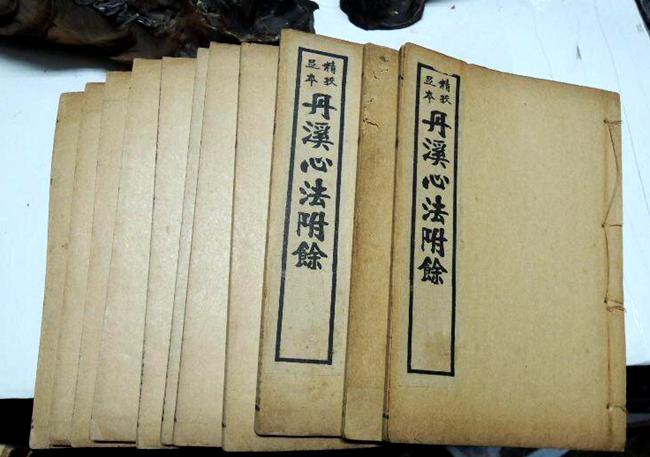 精挍
足夲
丹溪心法附餘
精挍
足夲
丹溪心法附餘